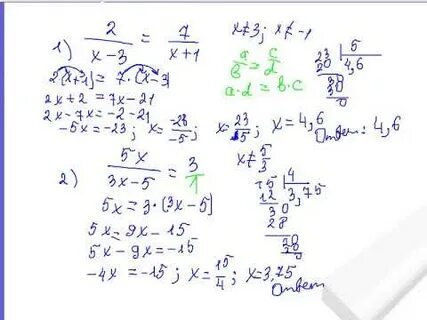 1) 2/(x-3) = 7/(x+1) x≠3; x≠-1
a/b = c/d
a·d = b·c
2(x+1) = 7·(x-3)
2x+2 = 7x-21
2x-7x = -2-21
-5x = -23; x = -23/-5; x = 23/5; x = 4,6 Ответ: 4,6
23 | 5
20 4,6
30
30
0
2) 5x/(3x-5) = 3/1 x≠5/3
5x = 3·(3x-5)
5x = 9x-15
5x-9x = -15
-4x = -15; x = 15/4; x = 3,75
Ответ
15 | 4
12 3,75
30
28
20
20
0